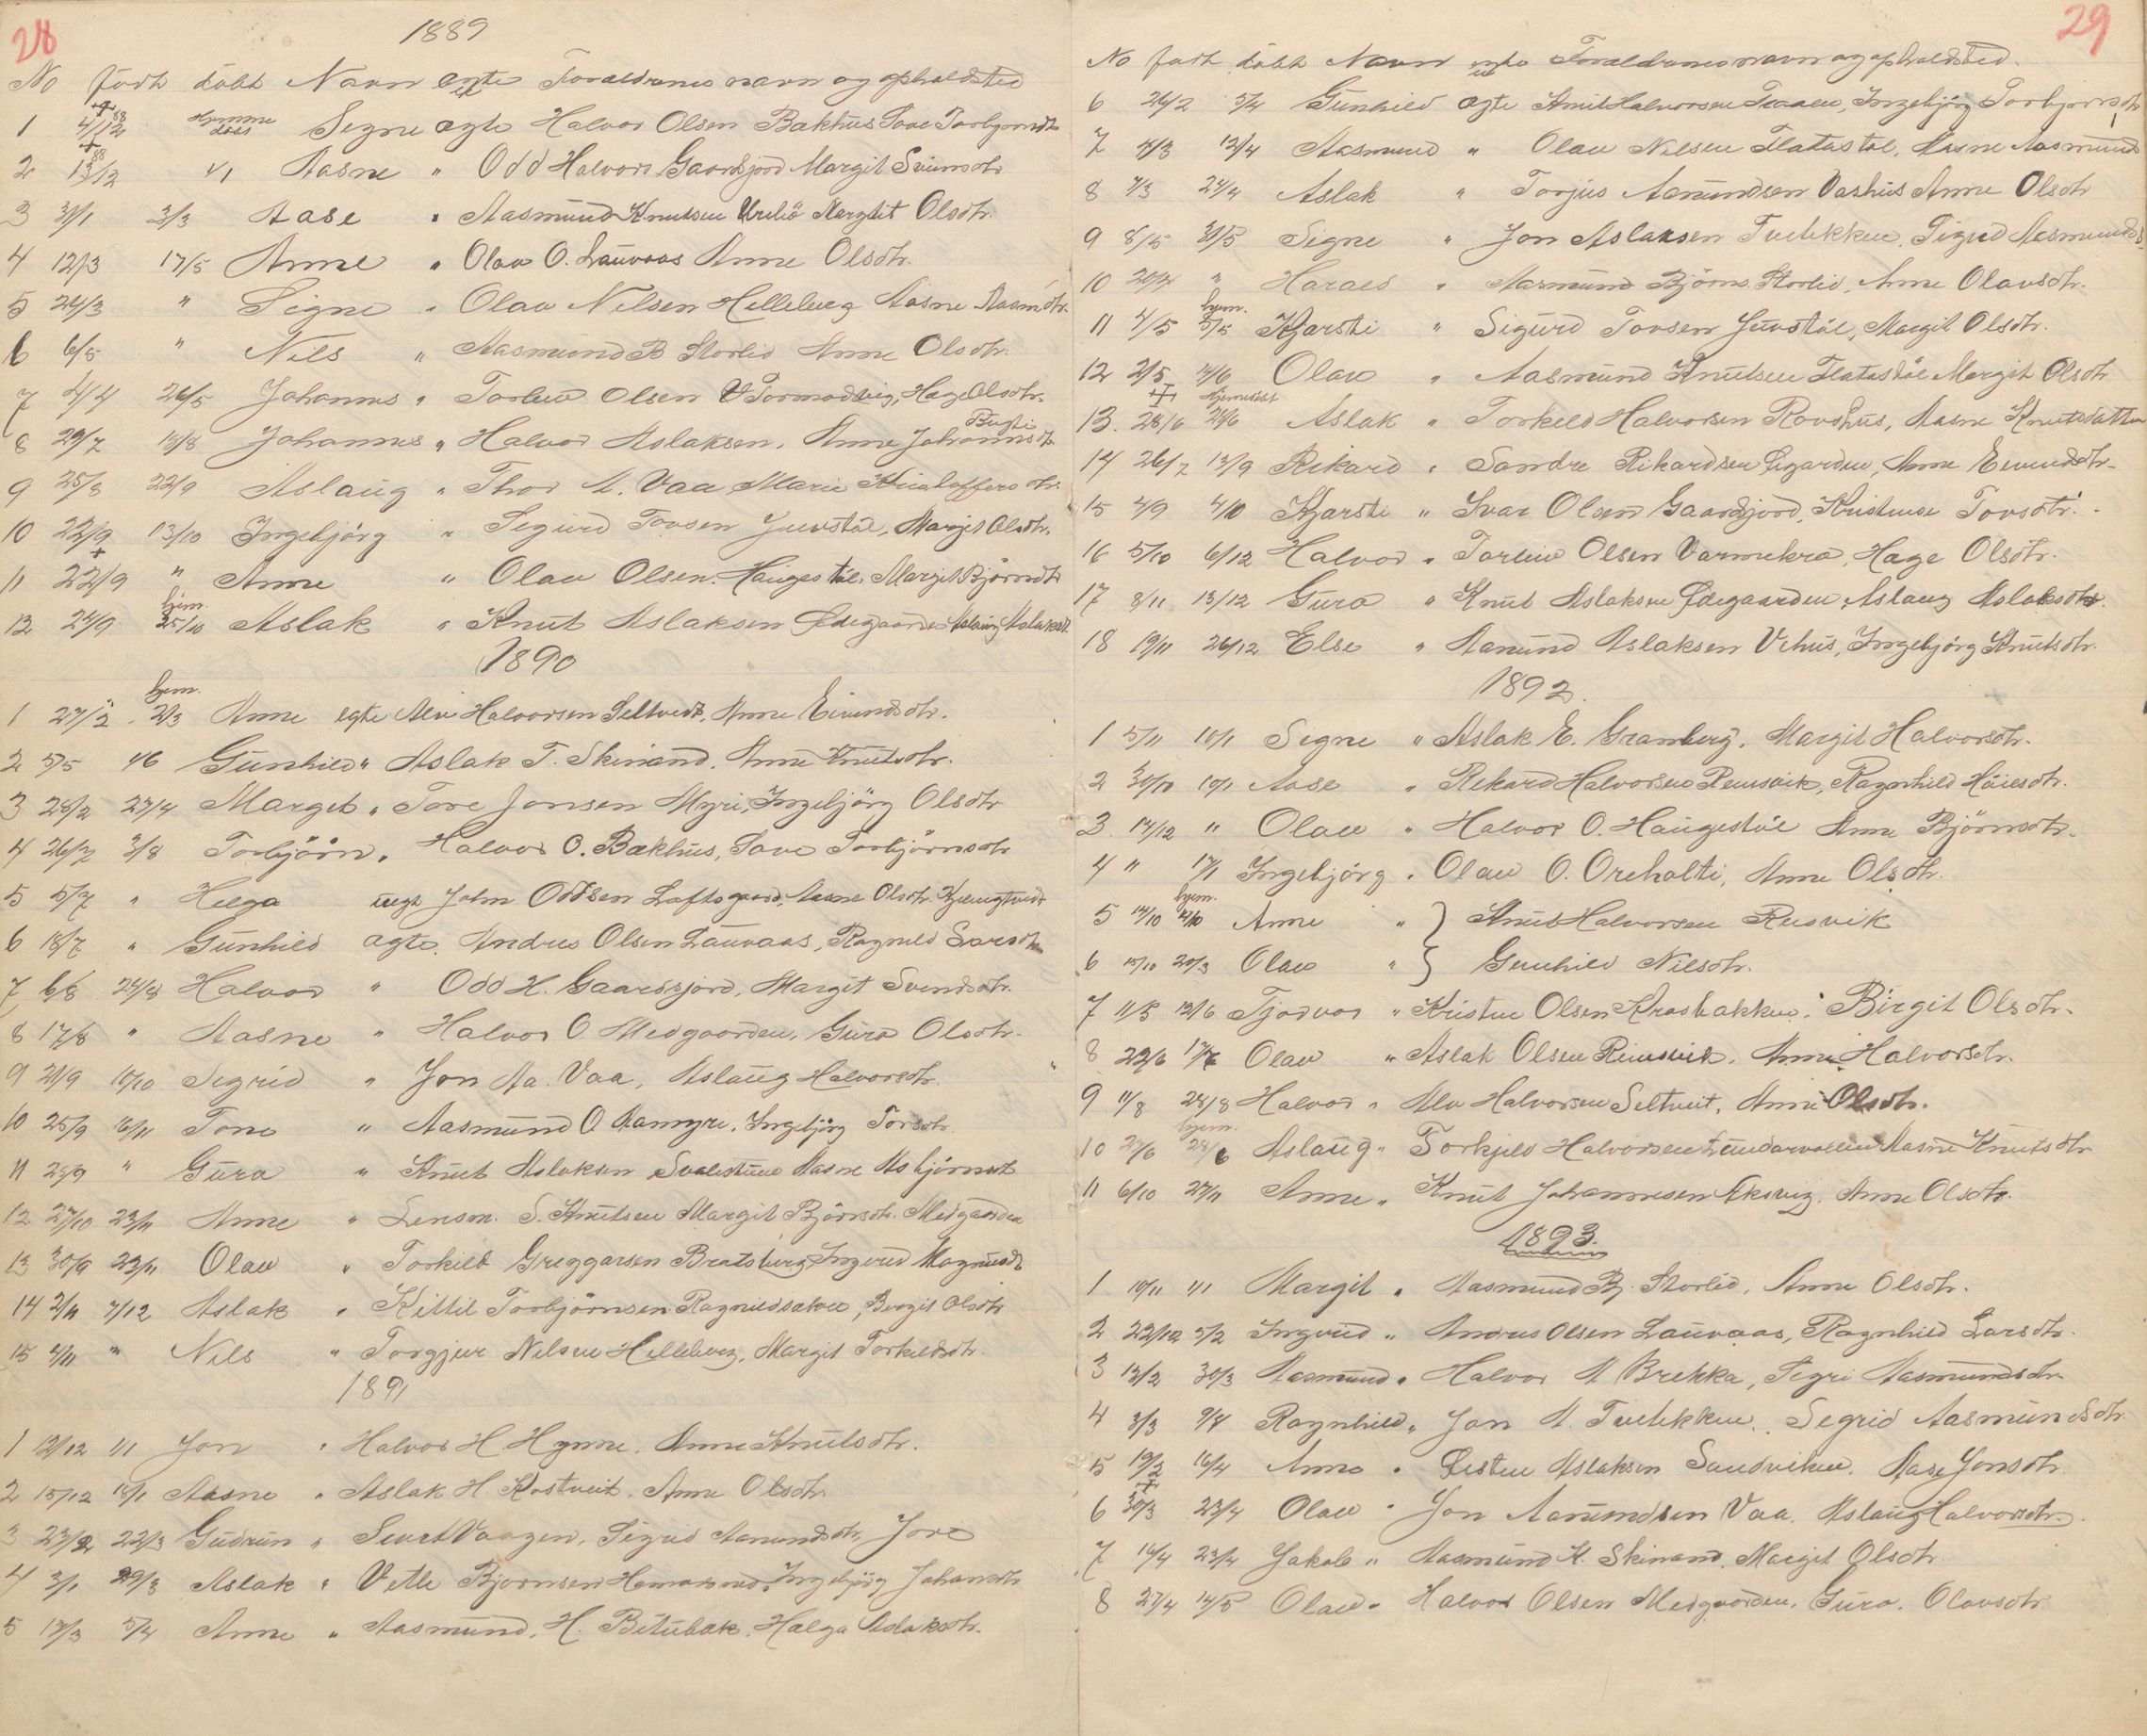 28
1889
No født døbt Navn ægte Foraldrenes navn og opholdsted
1 4/12 88 Hjemme døbt Signe ægte Halvor Olsen Bakhus Tove Torbjørnsdtr
2 13/12 88 1/1 Aasne " Odd Halvors. Gaardsjord Margit Svinsdtr
3 31/1 3/3 Aase " Aasmund Knutsen Margit Olsdtr.
4 12/3 17/5 Anne " Olav O. Lauvaas Anne Olsdtr.
5 24/3 " Signe " Olav Nilsen Helleberg Aasne Aasm.dtr.
6 6/5 " Nils " Aasmund B Storlid Anne Olsdtr.
7 4/4 26/5 Johannes " Torleiv Olsen Tormodsvig, Hage Olsdtr.
8 29/7 18/8 Johannes " Halvor Aslaksen, Anne Johannsdtr.
9 25/8 22/9 Aslaug " Thor A. Vaa Marie Kristoffersdtr.
10 22/9 13/10 Ingebjörg " Sigurd Tovsen Juvstøl, Margit Olsdtr.
11 22/9 " Anne " Olav Olsen Haugestöl, Margit Björnsdtr
12 24/9 hjem. 25/10 Aslak " Knut Aslaksen Ødegaarden Aslaug Aslaksdt.
1890
1 27/2 hjem. 2/3 Anne egte Alv Halvorsen Seltvedt, Anne Eivindsdtr.
2 5/5 1/6 Gunhild " Aslak T. Skinand, Anne Knutsdtr.
3 28/2 27/4 Margit " Tore Jonsen Myri, Ingebjörg Olsdtr
4 26/7 3/8 Torbjörn " Halvor O. Bakhus, Tove Torbjörnsdtr
5 5/7 " Helga uegt John Oddsen Loftsgaard, Aasne Olsdtr.
6 18/7 " Gunhild ægte Andres Olsen Lauvaas, Ragnild Larsdtr
7 6/8 24/8 Halvor " Odd H. Gaardsjord, Margit Svendsdtr.
8 17/8 " Aasne " Halvor O Medgaarden, Guro Olsdtr.
9 21/9 10/10 Sigrid " Jon Aa. Vaa, Aslaug Halvorsdtr.
10 25/9 16/11 Tone " Aasmund O Aamyre, Ingebjörg Torsdtr.
11 29/9 " Guro " Knut Aslaksen Svalestuen Aasne Asbjörnsdt
12 27/10 23/11 Anne " Lensm. S. Knutsen Margit Björnsdtr. Medgaarden
13 30/9 23/11 Olav " Torkild Greggarsen Bratsberg Ingerid Magnusdt
14 2/11 7/12 Aslak " Kittil Torbjörnsen Birgit Olsdtr
15 4/11 " Nils " Torgjus Nilsen Helleberg, Margit Torkildsdtr.
1891
1 12/12 1/1 Jon " Halvor H Hynne, Anne Knutsdtr.
2 15/12 18/1 Aasne " Aslak H. Kostveit, Anne Olsdtr.
3 23/2 22/3 Gudrun " Vaagen, Sigrid Aanundsdtr, Jore
4 3/1 29/3 Aslak " Vetle Bjornsen Ingebjörg Johannsdtr
5 17/3 5/4 Anne " Aasmund H. Bitubæk, Halga Aslaksdtr.
29
No født døbt Navn egte Foreldrenes navn og opholdsted.
6 26/2 5/4 Gunhild ægte Knut Halvorsen Ingebjörg Torbjornsdtr
7 4/3 12/4 Aasmund " Olav Nilsen Flatastöl, Aasne Aasmunds
8 7/3 24/4 Aslak " Torjus Aanundsen Vashus Anne Olsdtr
9 8/5 31/5 Signe " Jon Aslaksen Tvelekken, Sigrid Aasmundsd.
10 20/4 " Harald " Aasmund Björns. Storlid, Anne Olavsdtr.
11 4/5 hjem. 5/5 Kjersti " Sigurd Tovsen Juvstøl, Margit Olsdtr.
12 2/5 7/6 Olav " Aasmund Knutsen Flatastöl Margit Olsdtr
13 28/6 Hjemedøbt 28/6 Aslak " Torkild Halvorsen Rovshus, Aasne Knutsdatter
14 26/7 13/9 Rikard " Sondre Rikardsen Sigarden, Anne Eivindsdtr.
15 4/9 4/10 Kjersti " Ivar Olsen Gaardsjord, Kristense Tovsdtr.
16 5/10 6/12 Halvor " Torleiv Olsen Varmekra, Hage Olsdtr.
17 8/11 13/12 Guro " Knut Aslaksen Ødegaarden, Aslaug Aslaksdtr.
18 19/11 26/12 Else " Aanund Aslaksen Vehus, Ingebjörg Knutsdtr.
1892.
1 5/11 10/1 Signe " Aslak E. Granberg, Margit Halvorsdtr.
2 30/10 10/1 Aase " Rikard Halvorsen Reinsvik, Ragnhild Höiesdtr.
3 14/12 " Olav " Halvor O. Haugestöl Anne Björnsdtr.
4 " 17/1 Ingebjörg " Olav O. Oreholti, Anne Olsdtr.
5 14/10 hjem. 14/10 Anne " } Knut Halvorsen Reisvik
6 15/10 20/3 Olav " } Gunhild Nilsdtr.
7 11/5 12/6 Tjodvor " Kristen Olsen Krosbakken, Birgit Olsdtr.
8 22/6 17/7 Olav " Aslak Olsen Reinsvik, Anne Halvorsdtr.
9 11/8 28/8 Halvor " Alv Halvorsen Seltveit, Anne Olsdtr.
10 27/6 hjem. 28/6 Aslaug " Torkjeld Halvorsen Aasne Knutsdtr
11 6/10 27/11 Anne " Knut Johannesen Eksvig, Anne Olsdtr.
1893.
1 10/11 1/1 Margit " Aasmund Bj. Storlid, Anne Olsdtr.
2 22/12 5/2 Ingerid " Andres Olsen Lauvaas, Ragnhild Larsdtr.
3 12/2 30/3 Aasmund " Halvor A Brekka, Sigri Aasmundsdtr.
4 3/3 9/4 Ragnhild " Jon A. Tvelekken, Sigrid Aasmundsdtr
5 19/2 16/4 Anne " Østen Aslaksen Sandviken, Aase Jonsdtr.
6 30/3 23/4 Olav " Jon Aanundsen Vaa, Aslaug Halvorsdtr.
7 16/4 23/4 Jakob " Aasmund K. Skinand, Margit Olsdtr.
8 27/4 14/5 Olav " Halvor Olsen Medgaarden, Guro Olavsdtr.